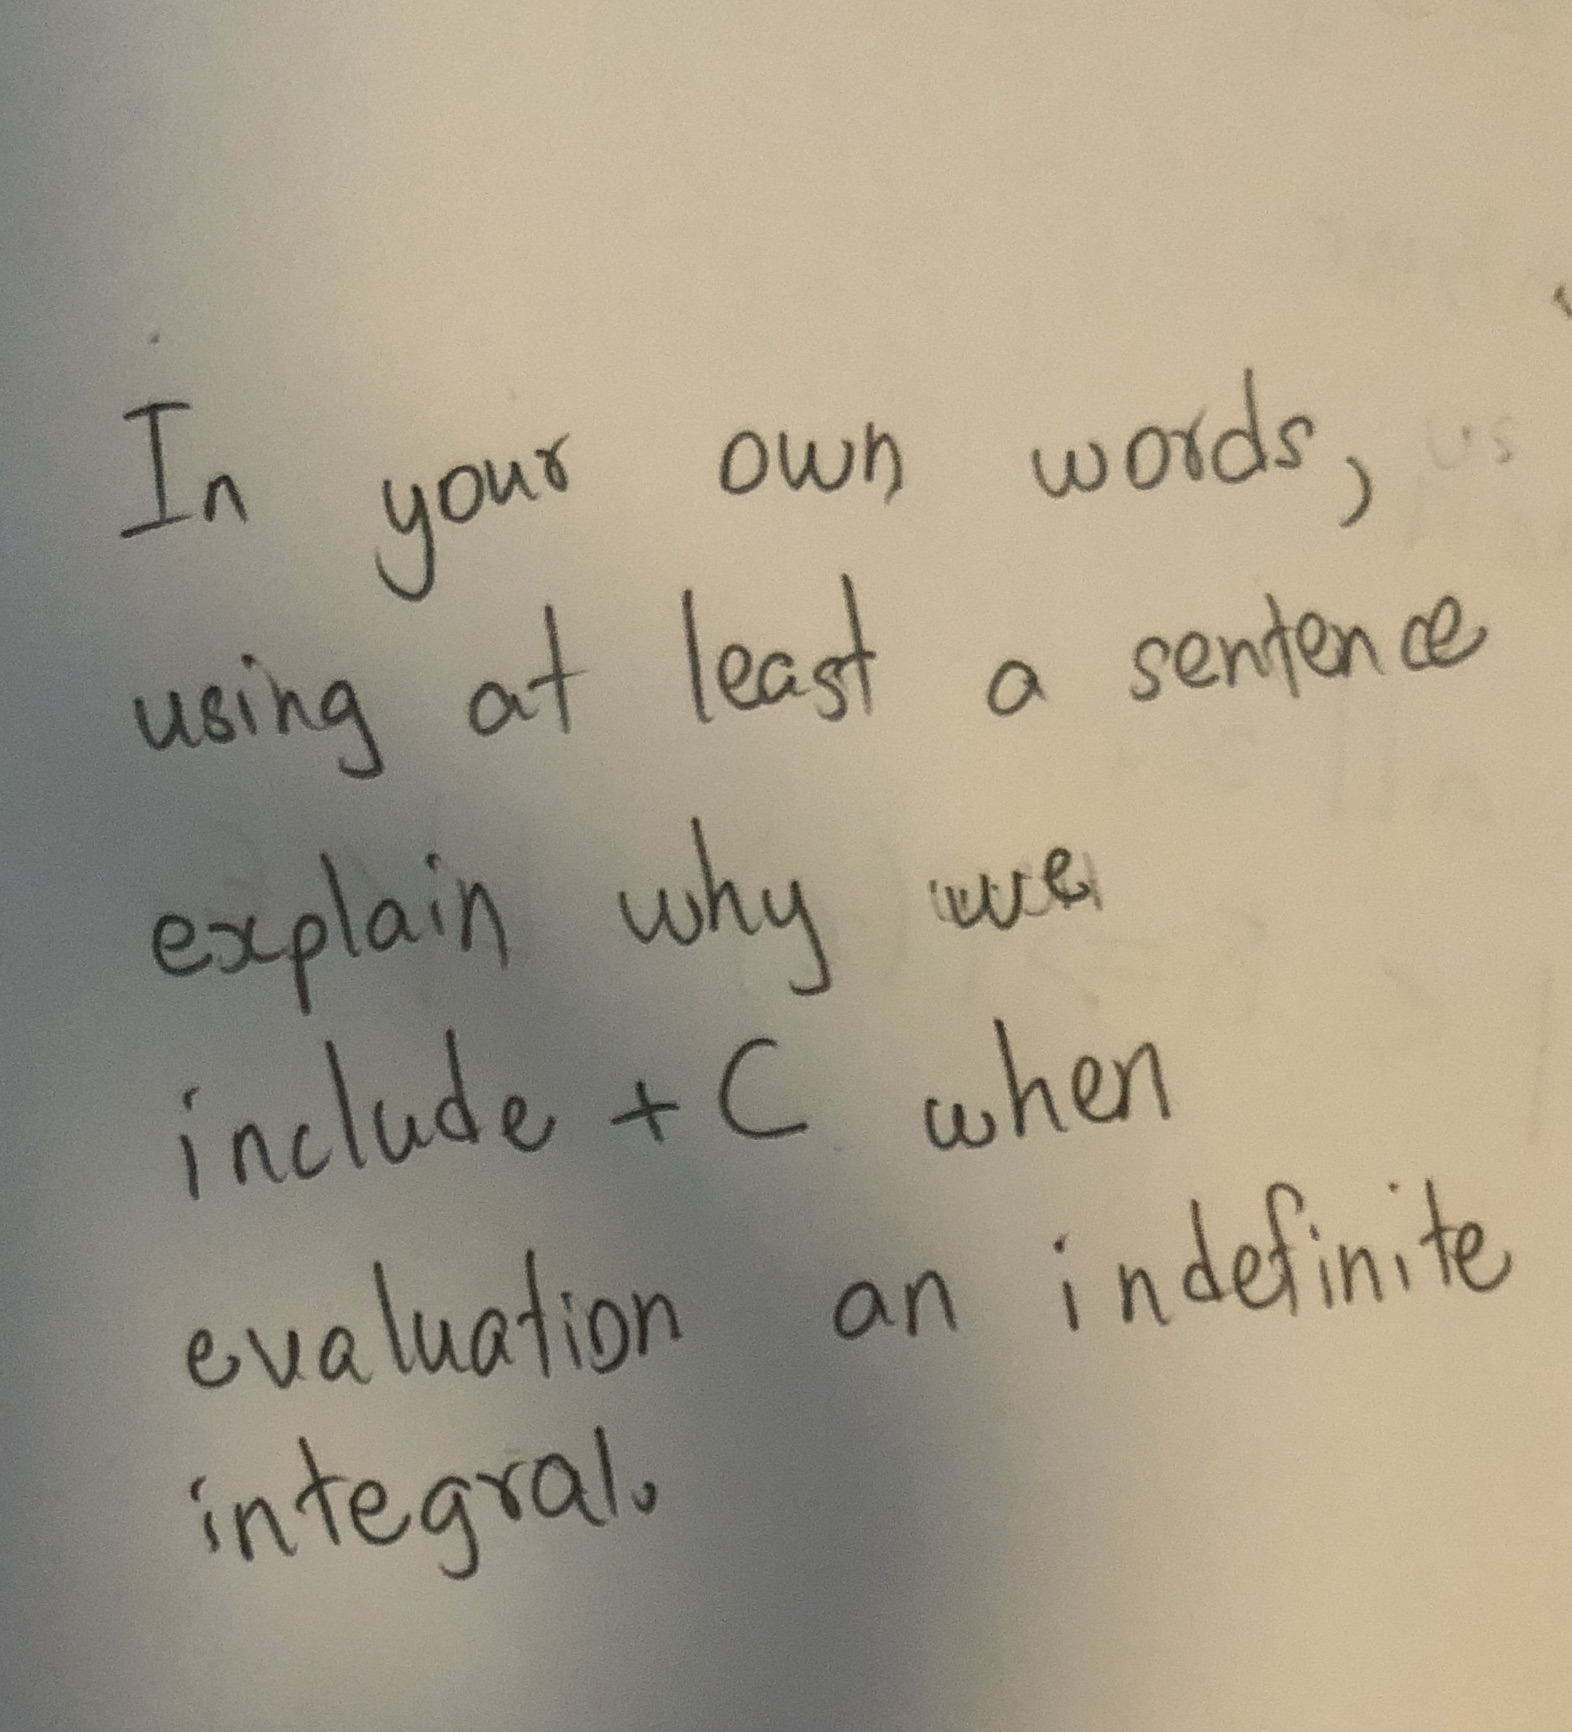 In your own words,
using at least a sentence
explain why we
include + C when
evaluation an indefinite
integral.